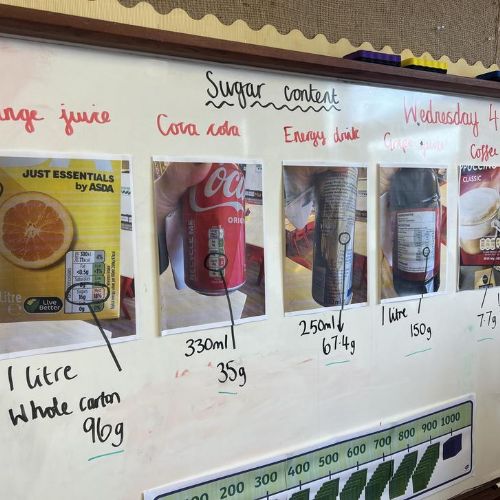 Sugar content
Wednesday 4
nge juice
Coca cola
Energy drink
Coffee
JUST ESSENTIALS
by ASDA
Live
Better
litre
Coc
ORIGI
RECYCLE ME
CLASSIC
1 litre
Whole carton
96g
330ml
35g
250ml
67.4g
1 litre
150g
7.7g
200 300 400 500 600 700 800 900 1000